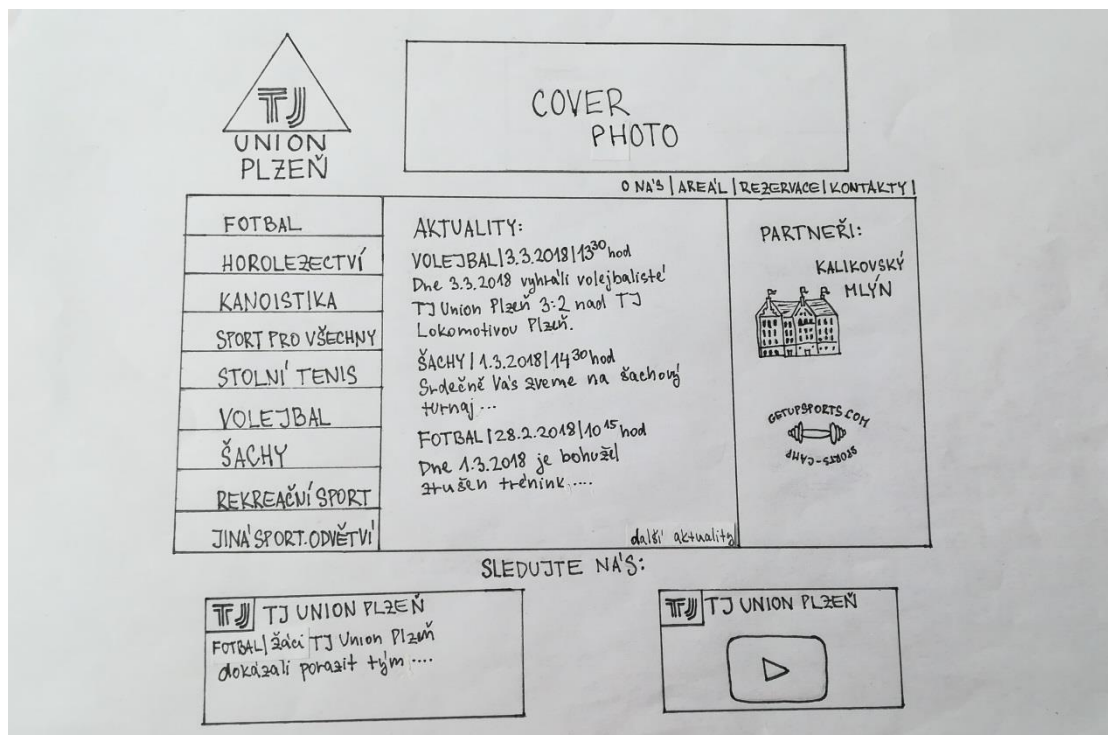 TJ
UNION
PLZEŇ
COVER
PHOTO
O NÁS | AREÁL | REZERVACE | KONTAKTY |
FOTBAL
HOROLEZECTVÍ
KANOISTIKA
SPORT PRO VŠECHNY
STOLNÍ TENIS
VOLEJBAL
ŠACHY
REKREAČNÍ SPORT
JINÁ SPORT. ODVĚTVÍ
AKTUALITY:
VOLEJBAL | 3.3.2018 | 13³⁰ hod
Dne 3.3.2018 vyhráli volejbalisté
TJ Union Plzeň 3:2 nad TJ
Lokomotivou Plzeň.
ŠACHY | 1.3.2018 | 14³⁰ hod
Srdečně Vás zveme na šachový
turnaj ...
FOTBAL | 28.2.2018 | 10¹⁵ hod
Dne 1.3.2018 je bohužel
zrušen trénink ....
další aktuality
PARTNEŘI:
KALIKOVSKÝ
MLÝN
GETUPSPORTS.COM
SPORTS-CAMP
SLEDUJTE NÁS:
TJ TJ UNION PLZEŇ
FOTBAL | žáci TJ Union Plzeň
dokázali porazit tým ....
TJ TJ UNION PLZEŇ